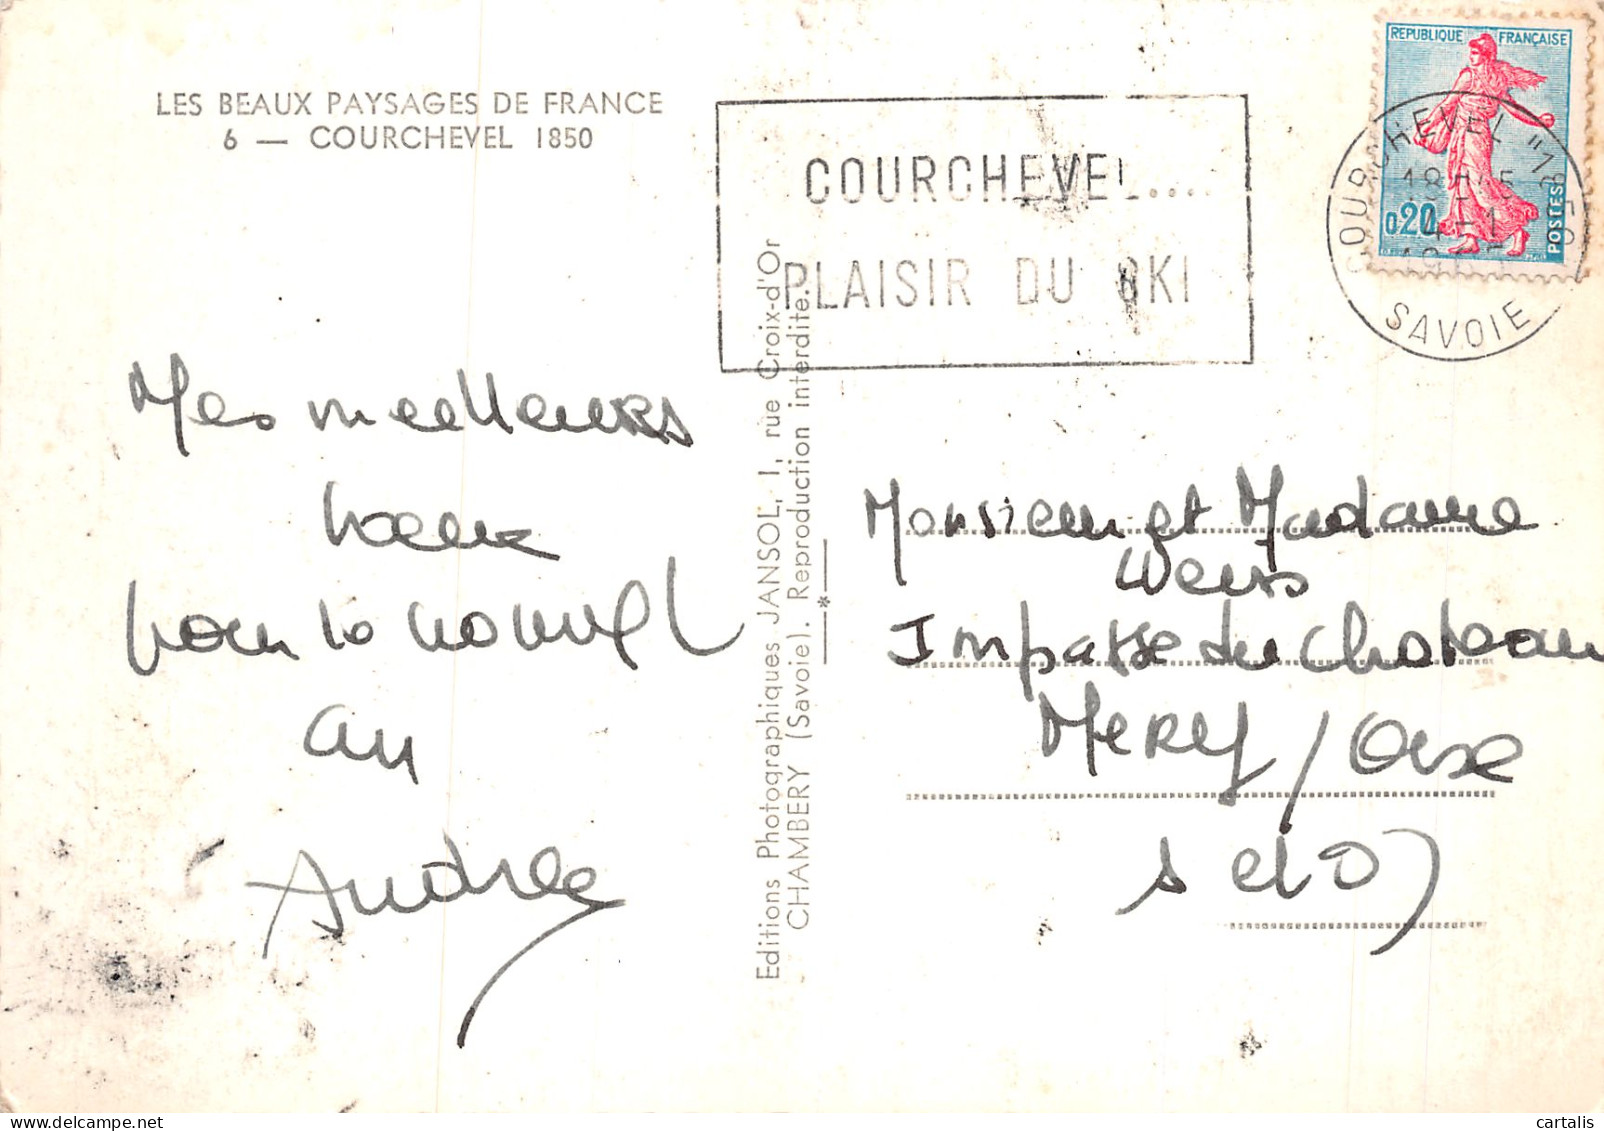 LES BEAUX PAYSAGES DE FRANCE
6 — COURCHEVEL 1850
COURCHEVEL....
PLAISIR DU SKI
REPUBLIQUE FRANÇAISE
0,20
POSTES
COURCHEVEL "1850"
18H45
4-1
SAVOIE
Mes meilleurs
voeux
pour le nouvel
an
Andrée
Editions Photographiques JANSOL, 1, rue Croix-d'Or
CHAMBERY (Savoie). Reproduction interdite.
Monsieur et Madame
Weiss
Impasse du Chateau
MERY / Oise
S et O)
cartalis
delcampe.net